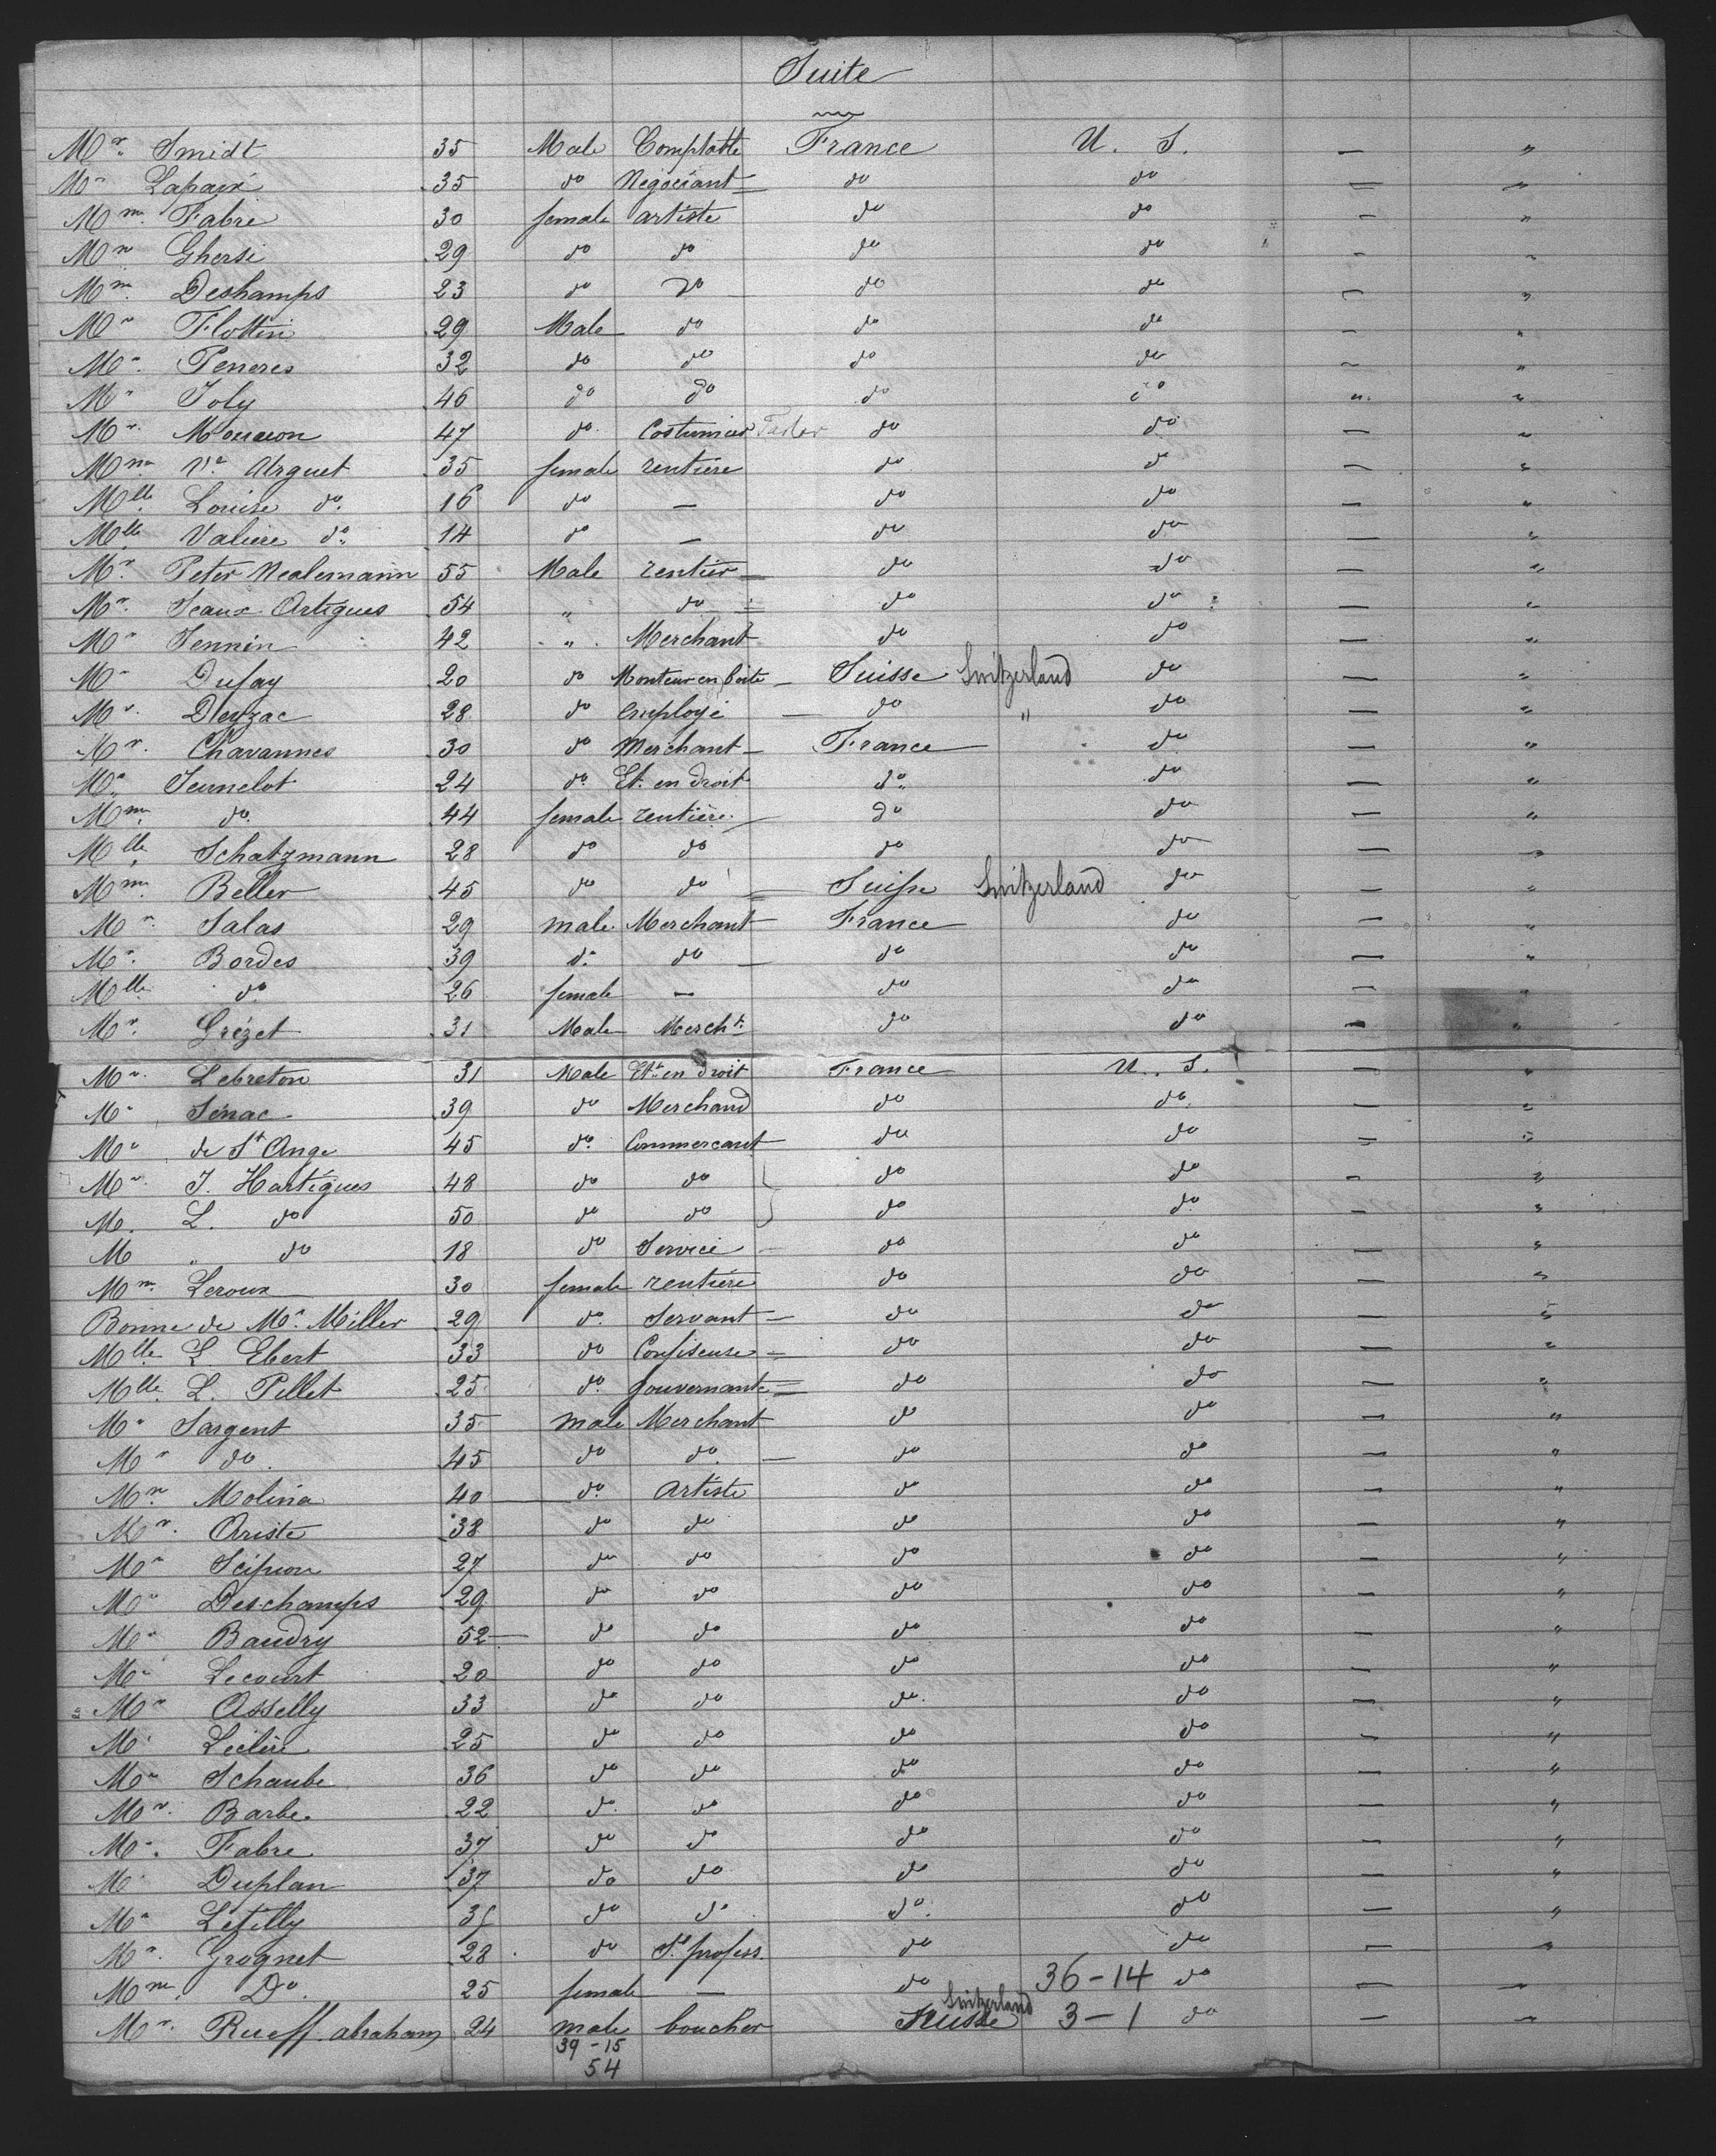 Suite
Mr Smidt 35 Male Comptable France U. S. — "
Mr Lapaix 35 do Négociant do do — "
Mme Fabre 30 female artiste do do — "
Mme Ghersi 29 do do do do — "
Mme Deshamps 23 do do do do — "
Mr Flottin 29 Male do do do — "
Mr Peneres 32 do do do do — "
Mr Joly 46 do do do do " "
Mr 47 do Costumier do do — "
Mme Ve Arguet 35 female rentière do do — "
Mlle Louise do 16 do — do do — "
Mlle Valiere do 14 do — do do — "
Mr Peter Nealemann 55 Male rentier do do — "
Mr Jeaux Artigues 54 " do do do — "
Mr Jennin 42 " Merchant do do — "
Mr Dufay 20 do Monteur en boite Suisse Switzerland do — "
Mr Deyzac 28 do employé do " do — "
Mr Chavannes 30 do Merchant France do — "
Mr Jeunelot 24 do Et. en droit do do — "
Mme do 44 female rentière do do — "
Mlle Schatzmann 28 do do do do — "
Mme Beller 45 do do Suisse Switzerland do — "
Mr Salas 29 male Merchant France do — "
Mr Bordes 39 do do do do — "
Mlle do 26 female — do do — "
Mr Grézet 31 Male Mercht do do — "
Mr Lebreton 31 Male Et. en droit France U. S. — "
Mr Sénac 39 do Merchand do do — "
Mr de St Ange 45 do Commercant do do — "
Mr J. Hartigues 48 do do do do — "
M. L. do 50 do do do do — "
M " do 18 do Service do do — "
Mme Leroux 30 female rentière do do — "
Bonne de Mr Miller 29 do Servant do do — "
Mlle L. Ebert 33 do Confiseuse do do — "
Mlle L. Pellet 25 do gouvernante do do — "
Mr Sargent 35 male Merchant do do — "
Mr do 45 do do do do — "
Mr Molina 40 do Artiste do do — "
Mr Ariste 38 do do do do — "
Mr Scipion 27 do do do do — "
Mr Deschamps 29 do do do do — "
Mr Baudry 52 do do do do — "
Mr Lecourt 20 do do do do — "
Mr Asselly 33 do do do do — "
Mr Leclère 25 do do do do — "
Mr Schaube 36 do do do do — "
Mr Barbe 22 do do do do — "
Mr Fabre 37 do do do do — "
Mr Duplan 37 do do do do — "
Mr Letilly do do do do — "
Mr Grognet 28 do St profess. do do — "
Mme Do 25 female — do 36-14 do — "
Mr Rueff abraham 24 male boucher Switzerland 3-1 do — "
39-15
54